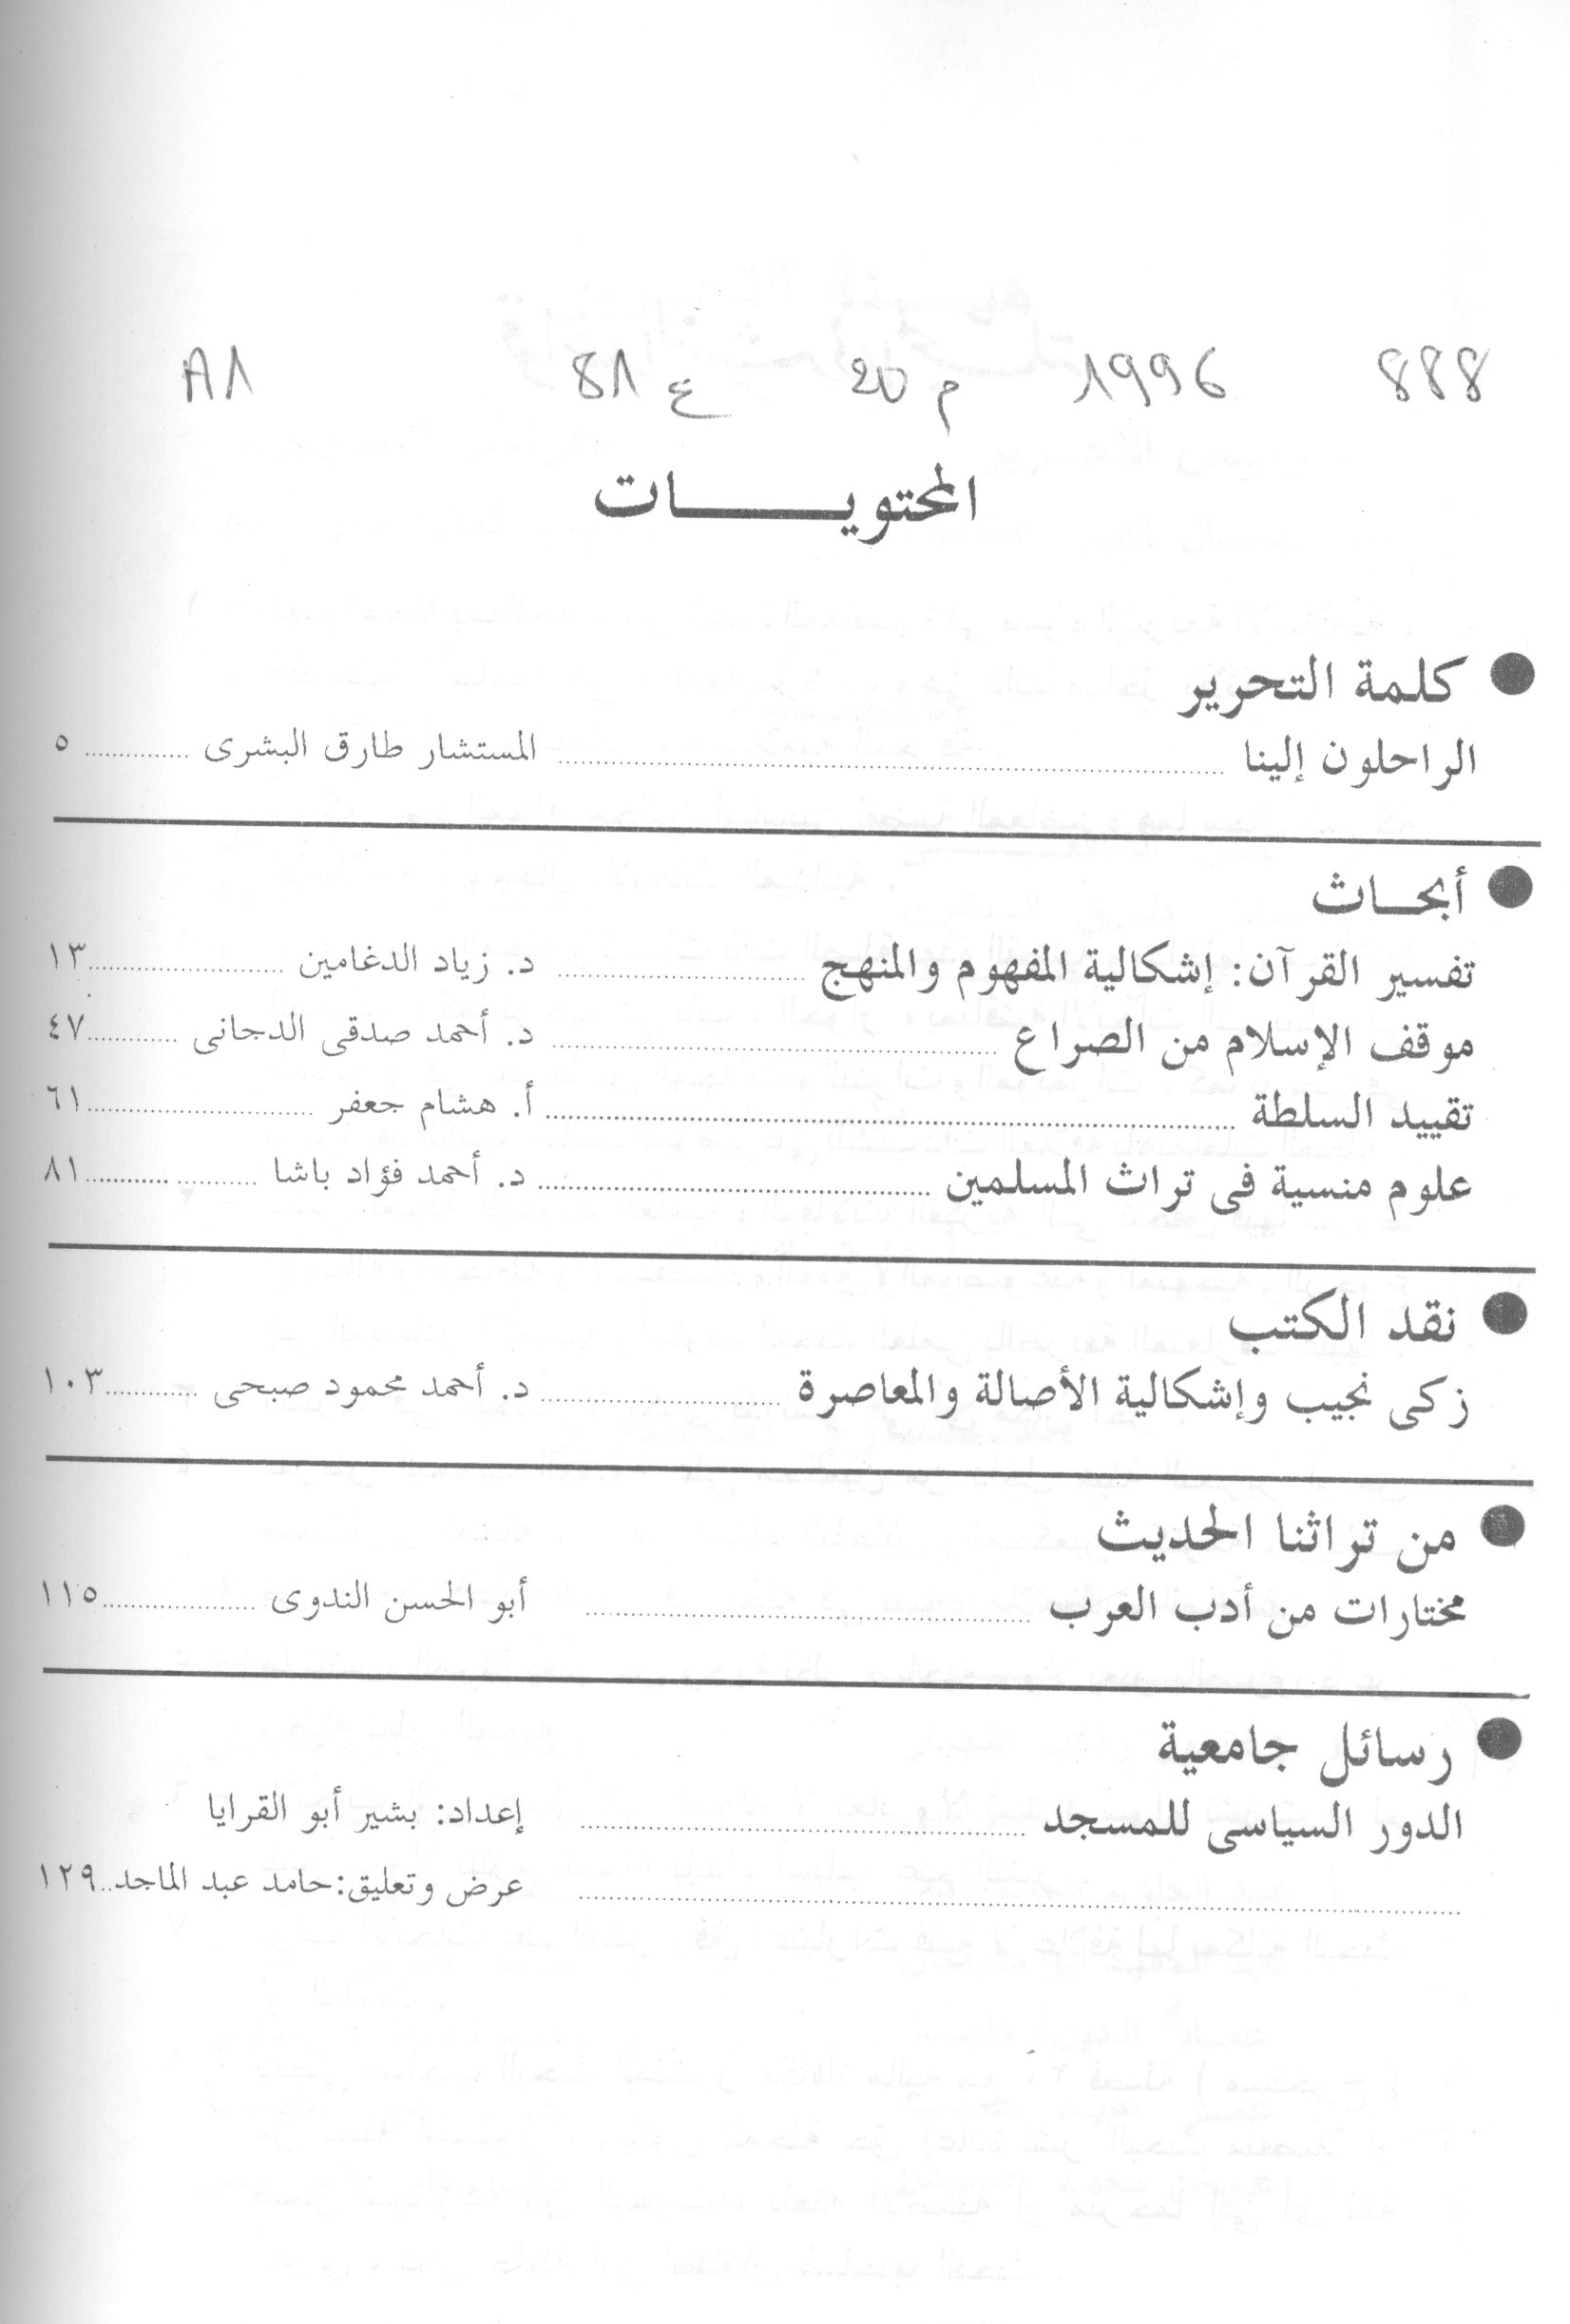 888 1996 م 20 ع 81 A1
المحتويات
● كلمة التحرير
الراحلون إلينا ........ المستشار طارق البشرى ........ ٥
● أبحاث
تفسير القرآن: إشكالية المفهوم والمنهج ........ د. زياد الدغامين ........ ١٣
موقف الإسلام من الصراع ........ د. أحمد صدقى الدجانى ........ ٤٧
تقييد السلطة ........ أ. هشام جعفر ........ ٦١
علوم منسية فى تراث المسلمين ........ د. أحمد فؤاد باشا ........ ٨١
● نقد الكتب
زكى نجيب وإشكالية الأصالة والمعاصرة ........ د. أحمد محمود صبحى ........ ١٠٣
● من تراثنا الحديث
مختارات من أدب العرب ........ أبو الحسن الندوى ........ ١١٥
● رسائل جامعية
الدور السياسى للمسجد ........ إعداد: بشير أبو القرايا
........ عرض وتعليق: حامد عبد الماجد .. ١٢٩